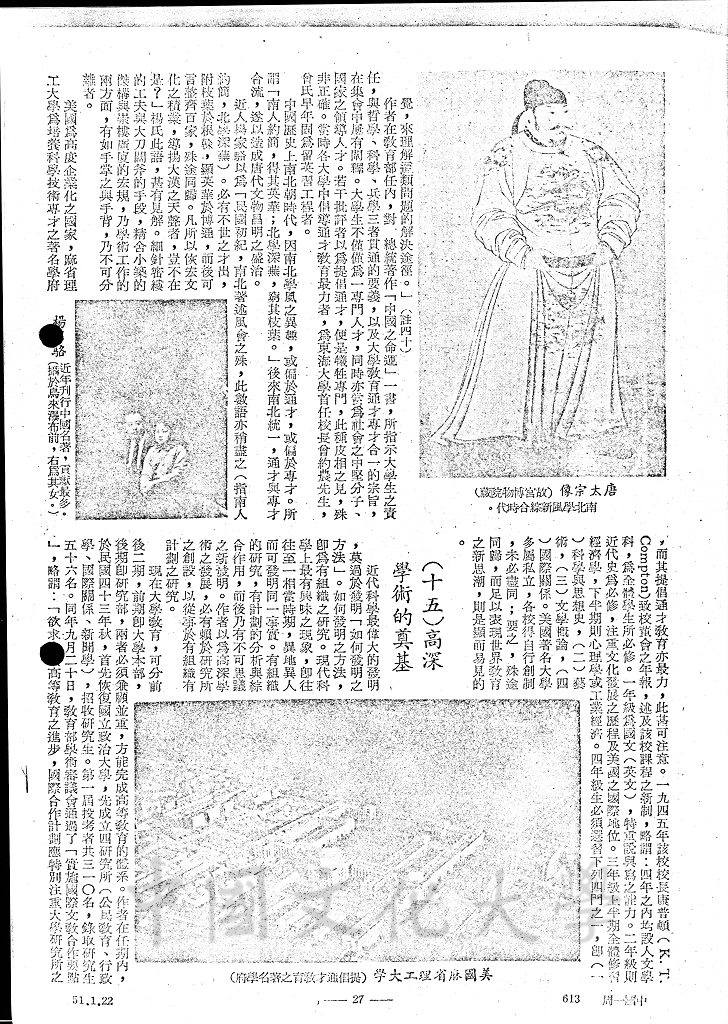 覺，來理解這類問題的解決途徑。」（註四十）
作者在教育部任內，對　總統著作「中國之命運」一書，所指示大學生之責
任，與哲學、科學、兵學三者貫通的要義，以及大學教育通才專才合一的宗旨，
在集會中屢有闡釋。大學生不僅僅爲一專門人才，同時亦當爲社會之中堅分子、
國家之領導人才。若干批評者以爲提倡通才，便是犧牲專門，此種皮相之見，殊
非正確。當時各大學中倡導通才教育最力者，爲東海大學首任校長曾約農先生，
曾氏早年固爲留英習工程者。
中國歷史上南北朝時代，因南北學風之異趣，或偏於通才，或偏於專才。所
謂「南人約簡，得其英華；北學深蕪，窮其枝葉。」後來南北統一，通才與專才
合流，遂以造成唐代文物昌明之盛治。
近人楊家駱以爲「民國初紀，南北著述風會之殊，此數語亦稍盡之（指南人
約簡，北學深蕪）。必有不世之才出，
附枝葉於根榦，顯英華於博通，而後可
言整齊百家，殊途同歸。凡所以恢宏文
化之積業，導揚大漢之天聲者，豈不在
是？」楊氏此語，甚有見解。細針密縷
的工夫與大刀闊斧的手段，精舍小築的
結構與崇樓廣廈的宏規，乃學術工作的
兩方面，有如手掌之與手背，乃不可分
離者。
美國爲高度企業化之國家，麻省理
工大學爲培養科學技術專才之著名學府
唐太宗像（故宮博物院藏）
南北學風新綜合時代。
楊　駱　近年刊行中國名著，貢獻最多。
（攝於烏來瀑布前，右爲其女。）
，而其提倡通才教育亦最力，此甚可注意。一九四五年該校校長康普頓（K. T.
Compton）致校董會之年報，述及該校課程之新制，略謂：四年之內均設人文學
科，爲全體學生所必修。一年級爲國文（英文），特重說與寫之能力。二年級則
近代史爲必修，注重文化發展之歷程及美國之國際地位。三年級上半期全體修習
經濟學，下半期則心理學或工業經濟。四年級生必須選習下列四門之一，卽（一
）科學與思想史，（二）藝
術，（三）文學概論，（四
）國際關係。美國著名大學
多屬私立，各校得自行創制
，未必盡同；要之，殊途
同歸，而足以表現世界教育
之新思潮，則是顯而易見的
（十五）高深
學術的奠基
近代科學最偉大的發明
，莫過於發明「如何發明之
方法」。如何發明之方法，
卽爲有組織之研究。現代科
學上最有興味之現象，卽往
往至一相當時期，異地異人
而可發明同一事實。有組織
的研究，有計劃的分析與綜
合作用，而後乃有不可思議
之新發明。作者以爲高深學
術之發展，必有賴於研究所
之創設，以從事於有組織有
計劃之研究。
現在大學教育，可分前
後二期，前期卽大學本部，
後期卽研究部，兩者必須兼顧並重，方能完成高等教育的體系。作者在任期內，
於民國四十三年秋，首先恢復國立政治大學，先成立四研究所（公民教育、行政
學、國際關係、新聞學），招收研究生。第一屆投考者共三一〇名，錄取研究生
五十六名。同年九月二十日，教育部學術審議會通過了「實施國際文教合作要點
」，略謂：「欲求　高等教育之進步，國際合作計劃應特別注重大學研究所之
美國麻省理工大學（提倡通才教育之著名學府）
中國文化大學
51.1.22
— 27 —
613　中國一周